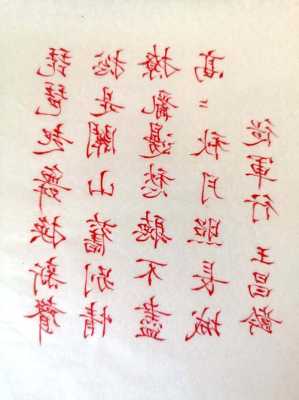 琵琶起舞換新聲
總是關山舊別情
撩亂邊愁聽不盡
高〻秋月照長城
從軍行 王昌齡